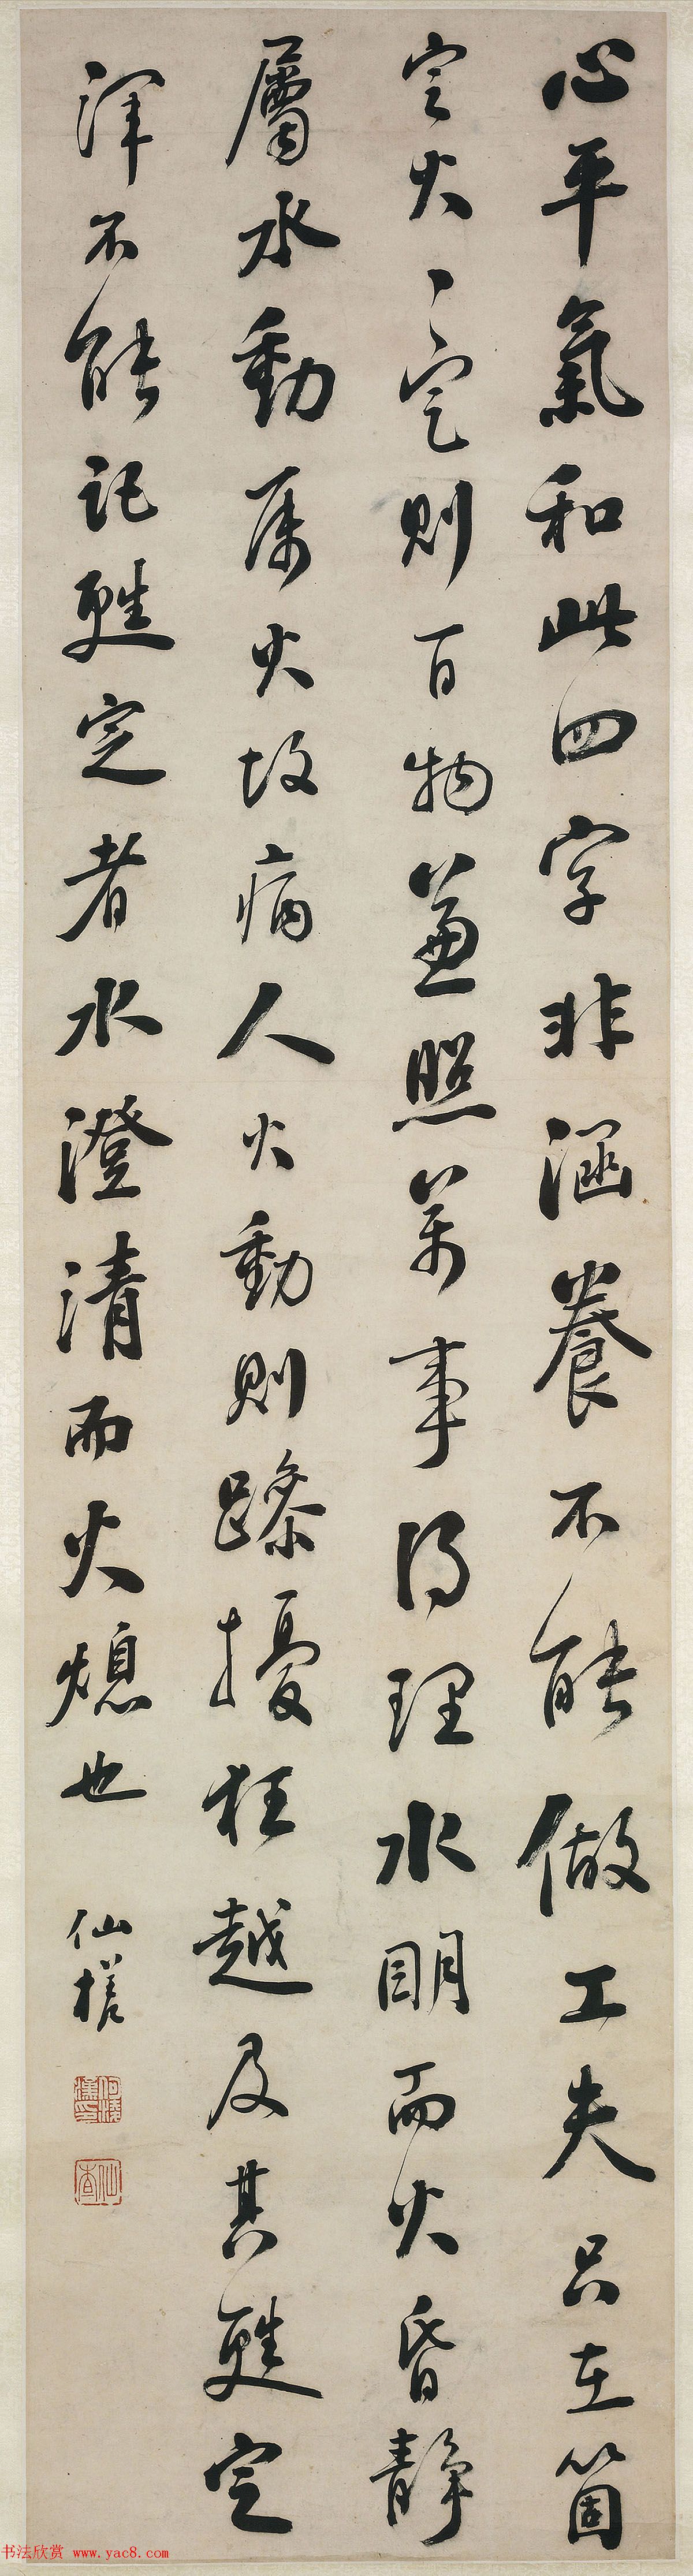 心平氣和此四字非涵養不能做工夫只在箇
定火〻定則百物兼照萬事得理水明而火昏靜
屬水動属火故病人火動則躁擾狂越及其甦定
渾不能記甦定者水澄清而火熄也
仙槎
书法欣赏 www.yac8.com